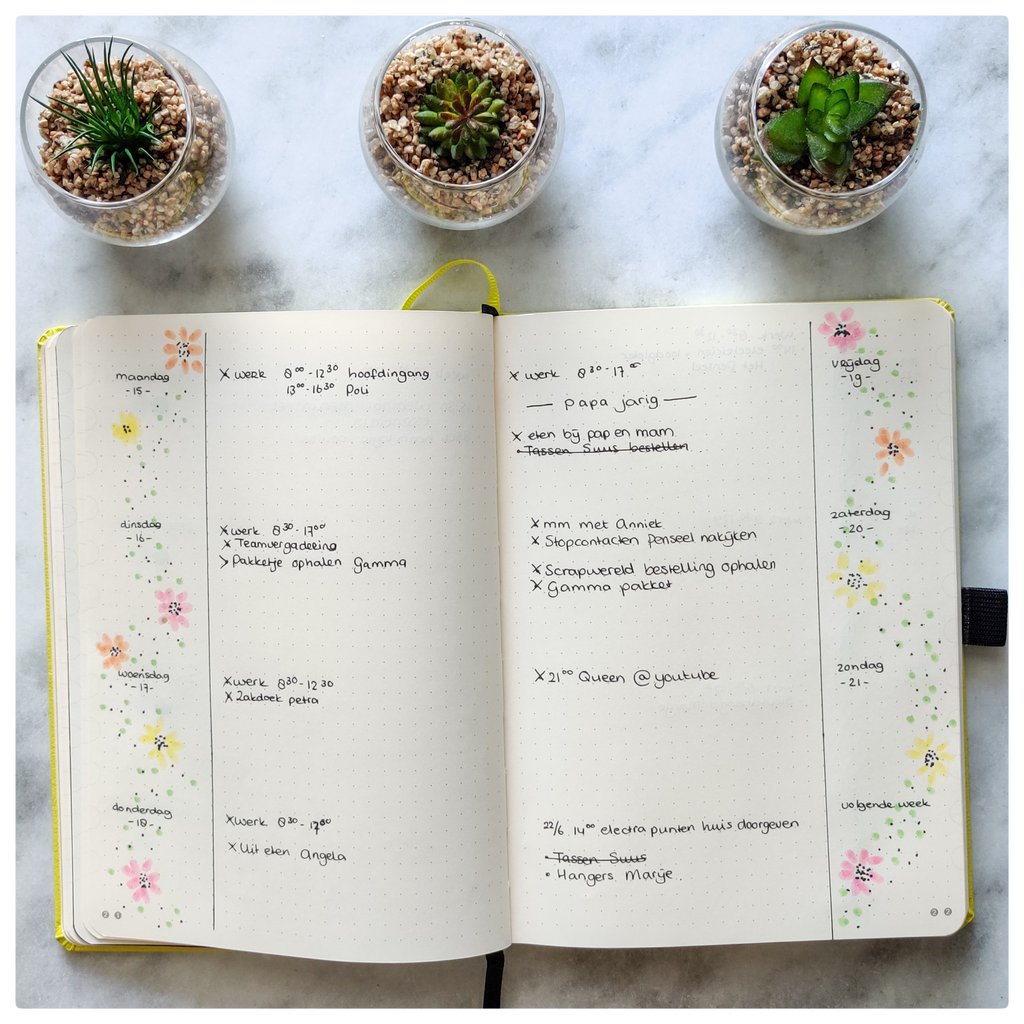 maandag
-15-
x werk 8⁰⁰-12³⁰ hoofdingang
13⁰⁰-16³⁰ Poli
dinsdag
-16-
x werk 8³⁰-17⁰⁰
x Teamvergadering
> Pakketje ophalen Gamma
woensdag
-17-
x werk 8³⁰-12³⁰
x Zakdoek petra
donderdag
-18-
x werk 8³⁰-17⁰⁰
x Uit eten Angela
21
vrijdag
-19-
x werk 8³⁰-17⁰⁰
— papa jarig —
x eten bij pap en mam
• Tassen Suus bestellen
zaterdag
-20-
x mm met Anniek
x Stopcontacten Penseel nakijken
x Scrapwereld bestelling ophalen
x Gamma pakket
zondag
-21-
x 21⁰⁰ Queen @youtube
volgende week
22/6 14⁰⁰ electra punten huis doorgeven
• Tassen Suus
• Hangers Marije
22